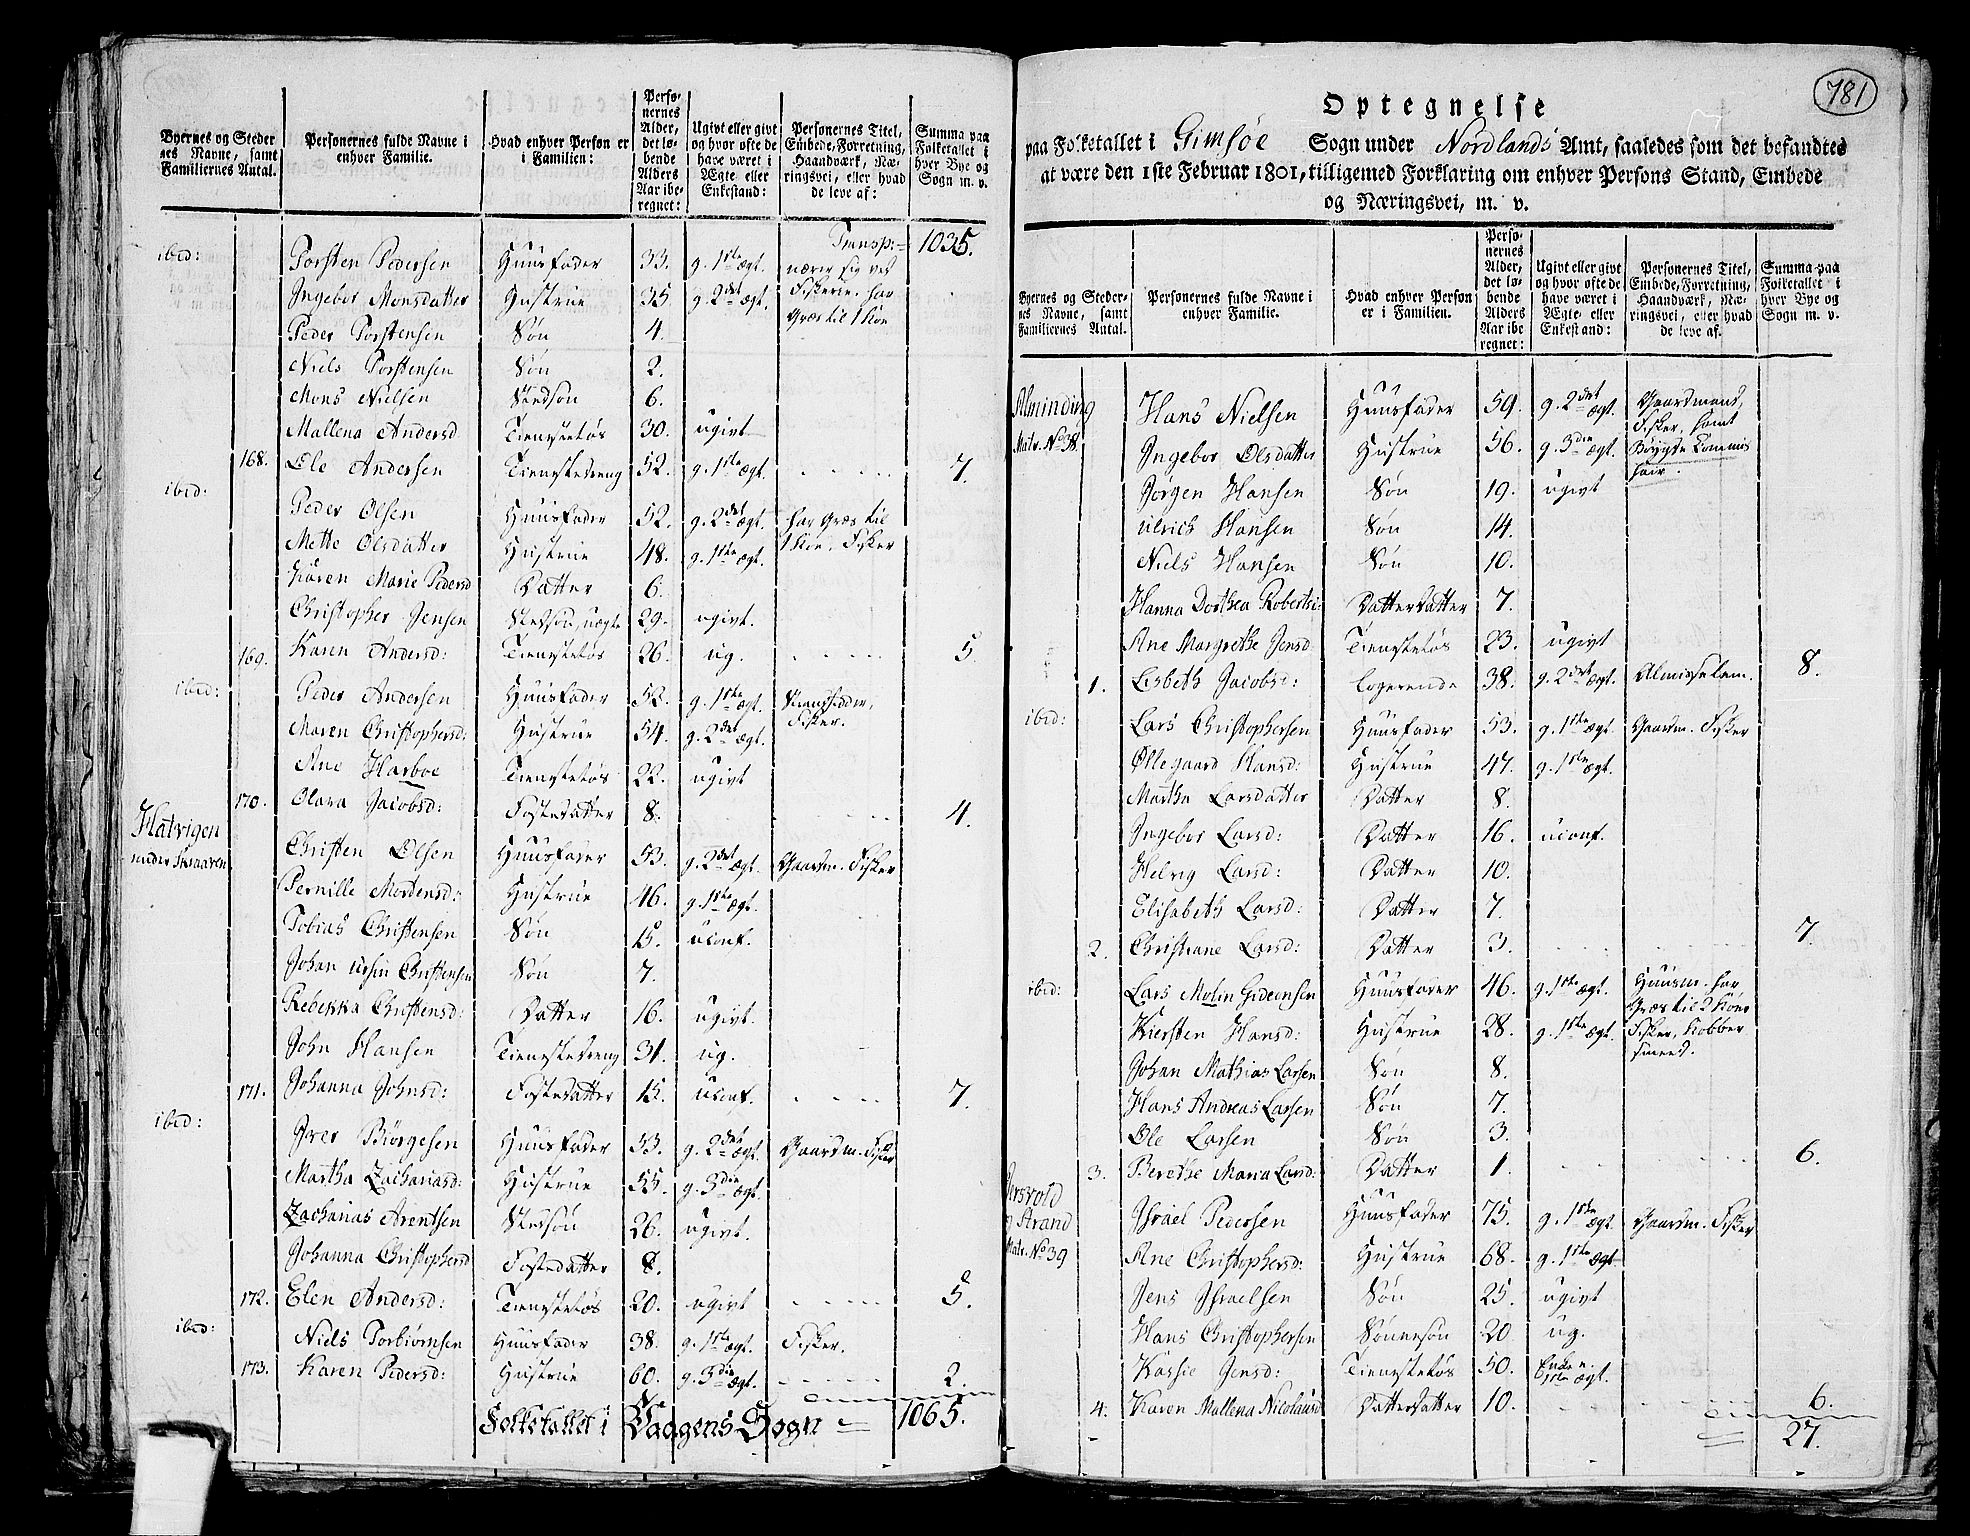 Byernes og Steder
nes Navne, samt
Familiernes Antal.
Personernes fulde Navne i
enhver Familie.
Hvad enhver Person er
i Familien:
Perso-
nernes
Alder,
det lø-
bende
Alders
Aar ibe-
regnet:
Ugivt eller givt
og hvor ofte de
have været i
Ægte eller
Enkestand:
Personernes Titel,
Embede, Forretning,
Haandværk, Næ-
ringsvei, eller hvad
de leve af:
Summa paa
Folketallet i
hver Bye og
Sogn m. v.
Transp:= 1035.
ibid: Torsten Pedersen Huusfader 33. g. 1ste ægt. nærer sig ved
Ingebor Monsdatter Hustrue 35 g. 2det ægt. Fiskerie. har
Peder Torstensen Søn 4. Græs til 1 Koe
Niels Torstensen Søn 2.
Mons Nielsen Stedsøn 6.
Mallena Andersd Tienestetøs 30. ugivt
168. Ole Andersen Tienestedreng 52. g. 1ste ægt. 7.
ibid: Peder Olsen Huusfader 52. g. 2det ægt. har Græs til
Mette Olsdatter Hustrue 48. g. 1ste ægt. 1 Koe, Fisker
Karen Marie Pedersd Datter 6.
Christopher Jensen Stedsøn, uægte 29. ugivt.
169. Karen Andersd: Tienestetøs 26. ug. 5.
ibid: Peder Andersen Huusfader 52. g. 1ste ægt. Strandsidder,
Maren Christophersd: Hustrue 54. g. 2det ægt. Fisker.
Ane Harboe Tienestetøs 22. ugivt
170. Olava Jacobsd: Fosterdatter 8. 4.
Hatvigen
under Skraaven
Christen Olsen Huusfader 53. g. 2det ægt. Gaardm. Fisker
Pernille Mortensd: Hustrue 46. g. 1ste ægt.
Tobias Christensen Søn 15. uconf.
Johan Ursin Christensen Søn 7.
Rebekka Christensd: Datter 16. ugivt.
John Hansen Tienestedreng 31. ug.
171. Johanna Johnsd: Fosterdatter 15. uconf. 7.
ibid: Iver Børgesen Huusfader 53. g. 2det ægt. Gaardm. Fisker
Martha Zachariasd: Hustrue 55. g. 3die ægt.
Zacharias Arentsen Stedsøn 26. ugivt.
Johanna Christophersd Fosterdatter 8.
172. Elen Andersd: Tienestetøs 20. ugivt 5.
ibid: Niels Torbiørnsen Huusfader 38. g. 1ste ægt. Fisker.
173. Karen Pedersd: Hustrue 60. g. 3die ægt. 2.
Folketallet i Vaagens Sogn = 1065.
781
Optegnelse
paa Folketallet i Gimsøe Sogn under Nordlands Amt, saaledes som det befandtes
at være den 1ste Februar 1801, tilligemed Forklaring om enhver Persons Stand, Embede
og Næringsvei, m. v.
Byernes og Steder-
nes Navne, samt
Familiernes Antal.
Personernes fulde Navne i
enhver Familie.
Hvad enhver Person
er i Familien.
Perso-
nernes
Alder,
det lø-
bende
Alders
Aar ibe
regnet:
Ugivt eller givt
og hvor ofte de
have været i
Ægte eller
Enkestand:
Personernes Titel,
Embede, Forretning,
Haandværk, Næ-
ringsvei, eller hvad
de leve af.
Summa paa
Folketallet i
hver Bye og
Sogn m. v.
Alminding Hans Nielsen Huusfader 59. g. 2det ægt. Gaardmand,
Fisker, samt
Matr. No 38. Ingebor Olsdatter Hustrue 56. g. 3die ægt. Bøygde Commis
sair
Jørgen Hansen Søn 19. ugivt
Ulrich Hansen Søn 14.
Niels Hansen Søn 10.
Hanna Dorthea Roberts: Datterdatter 7.
Ane Margrethe Jensd Tienestetøs 23. ugivt
1. Lisbeth Jacobs: Logerende 38. g. 2det ægt. Almisselem. 8.
ibid: Lars Christophersen Huusfader 53. g. 1ste ægt. Gaardm. Fisker
Øllegaard Hansd: Hustrue 47. g. 1ste ægt.
Martha Larsdatter Datter 8.
Ingebor Larsd: Datter 16. uconf.
Helvig Larsd: Datter 10.
Elisabeth Larsd: Datter 7.
2. Christiane Larsd: Datter 3. 7.
ibid: Lars Molin Gideonsen Huusfader 46. g. 1ste ægt. Huusm. har
Græs til 2 Køer
Kiersten Hansd: Hustrue 28. g. 1ste ægt. Fisker, Kobber
smeed.
Johan Mathias Larsen Søn 8.
Hans Andreas Larsen Søn 7.
Ole Larsen Søn 3.
3. Berethe Maria Larsd: Datter 1. 6.
Strand
Matr. No 39
Israel Pedersen Huusfader 75. g. 1ste ægt. Gaardm. Fisker
Ane Christophersd: Hustrue 68. g. 1ste ægt.
Jens Israelsen Søn 25. ugivt
Hans Christophersen Sønnesøn 20 ug.
Kassie Jensd: Tienestetøs 50. Enke e. 1ste ægt.
4. Karen Mallena Nicolausd Datterdatter 10. 6.
27.